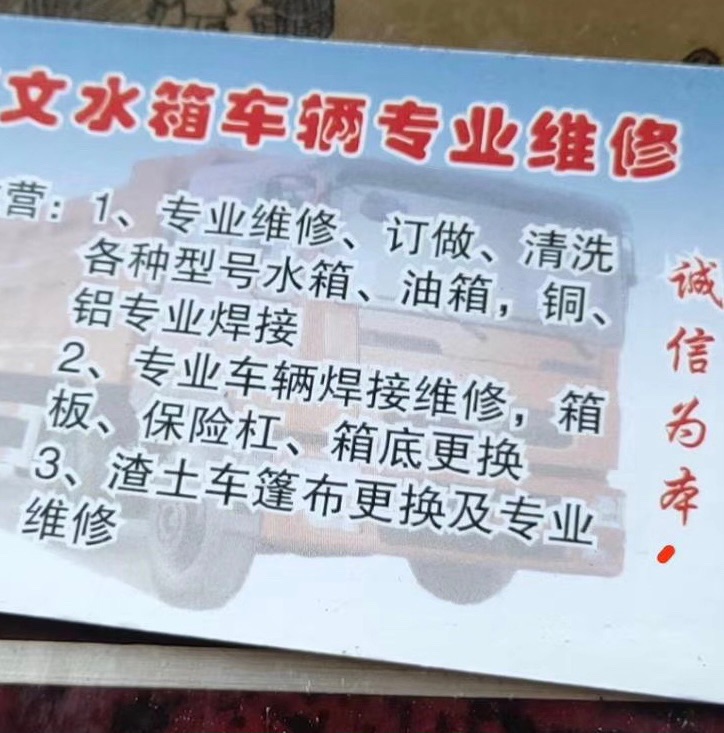 文水箱车辆专业维修
营：1、专业维修、订做、清洗
各种型号水箱、油箱，铜、
铝专业焊接
2、专业车辆焊接维修，箱
板、保险杠、箱底更换
3、渣土车篷布更换及专业
维修
诚信为本